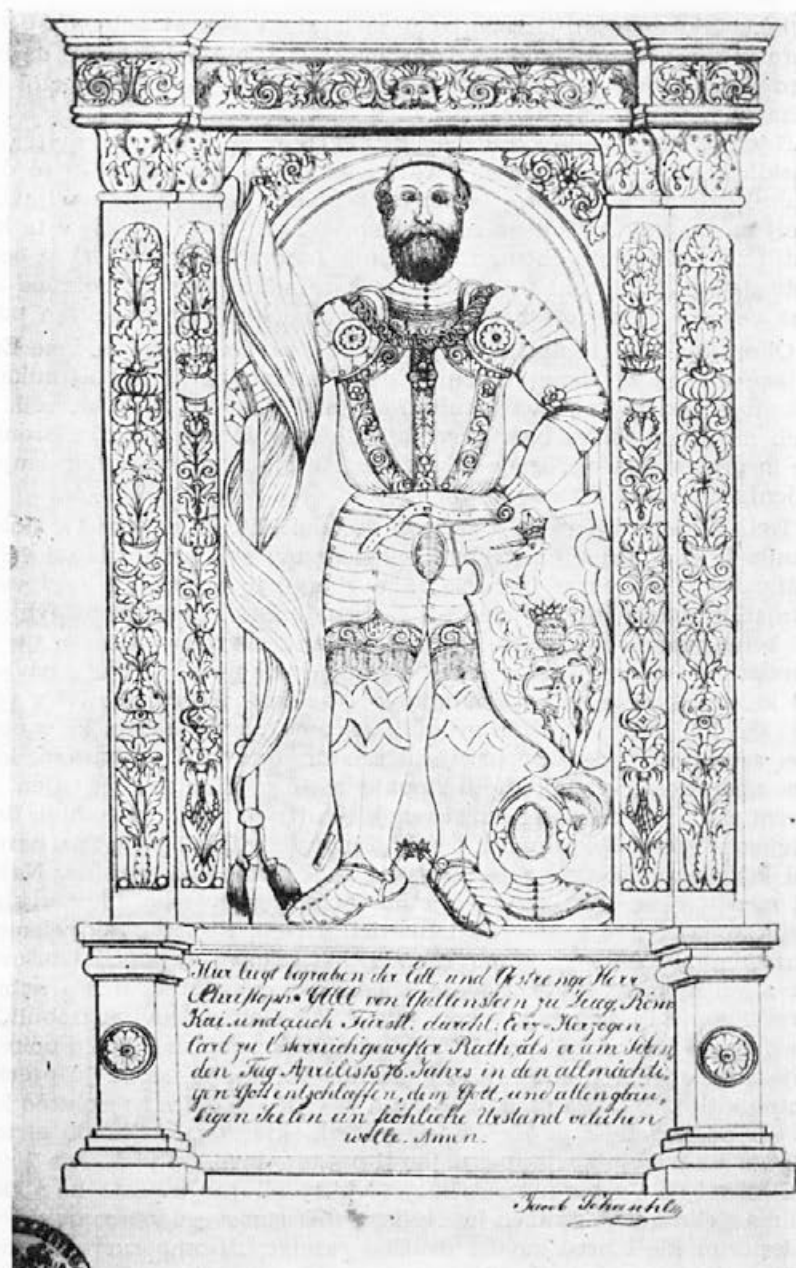 Hier liegt begraben der Edl und Gestrenge Herr
Christoph von zu Röm.
Kai. und auch Fürstl. durchl. Erz-Herzogen
Carl zu Österreich gewester Rath, als er am Siben
den Tag Aprilis 1576 Jahrs in den allmächti,
gen Gott entschlaffen, dem Gott, und allen glau,
bigen Seelen ein fröhliche Urstand veleihen
wolle. Amen.
Jacob